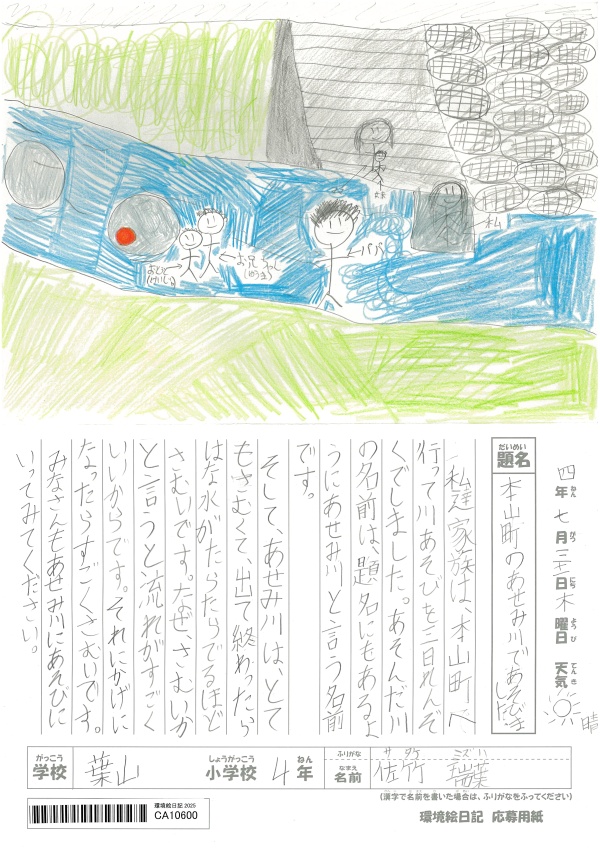 妹
私
パパ
お兄ちゃん
(ゆうき)
おとうと
けいじゅ
四年七月三十一日木曜日 天気 晴
ねん がつ にち ようび てんき
だいめい
題名
本山町のあせみ川であそびま
した
私達家族は、本山町へ
行って川あそびを三日れんぞ
くでしました。あそんだ川
の名前は、題名にもあるよ
うにあせみ川と言う名前
です。
そして、あせみ川は、とて
もさむくて、出て終わったら
はな水がたらたらでるほど
さむいです。なぜ、さむいか
と言うと流れがすごく
いいからです。それにかげに
なったらすごくさむいです。
みなさんもあせみ川にあそびに
いってみてください。
がっこう しょうがっこう ねん
学校 葉山 小学校 4年
ふりがな サタケ ミズハ
なまえ
名前 佐竹 瑞葉
(漢字で名前を書いた場合は、ふりがなをふってください)
環境絵日記 2025
CA10600
環境絵日記 応募用紙